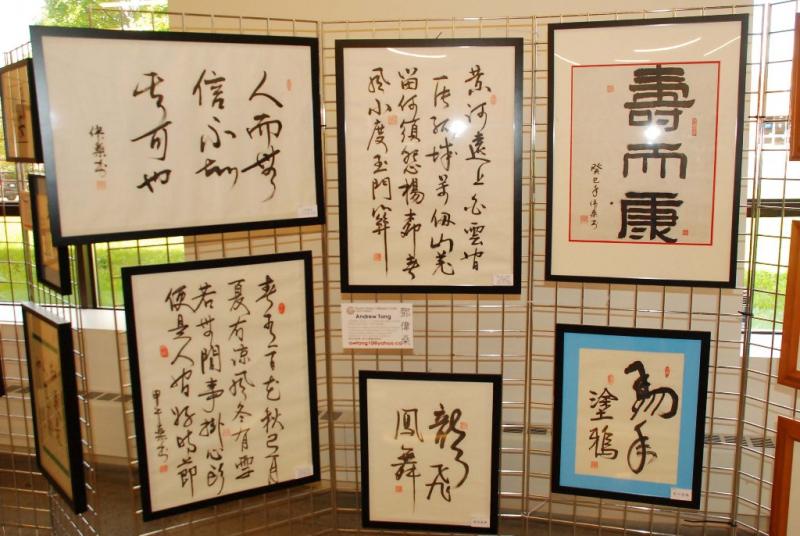 人而無
信不知
其可也
偉燊書
黃河遠上白雲間
一片孤城萬仞山羌
笛何須怨楊柳春
風不度玉門關
壽而康
癸巳年偉燊書
Andrew Tang
鄧偉燊
春有百花秋有月
夏有涼風冬有雪
若無閒事掛心頭
便是人間好時節
甲午燊書
龍飛
鳳舞
手
塗鴉